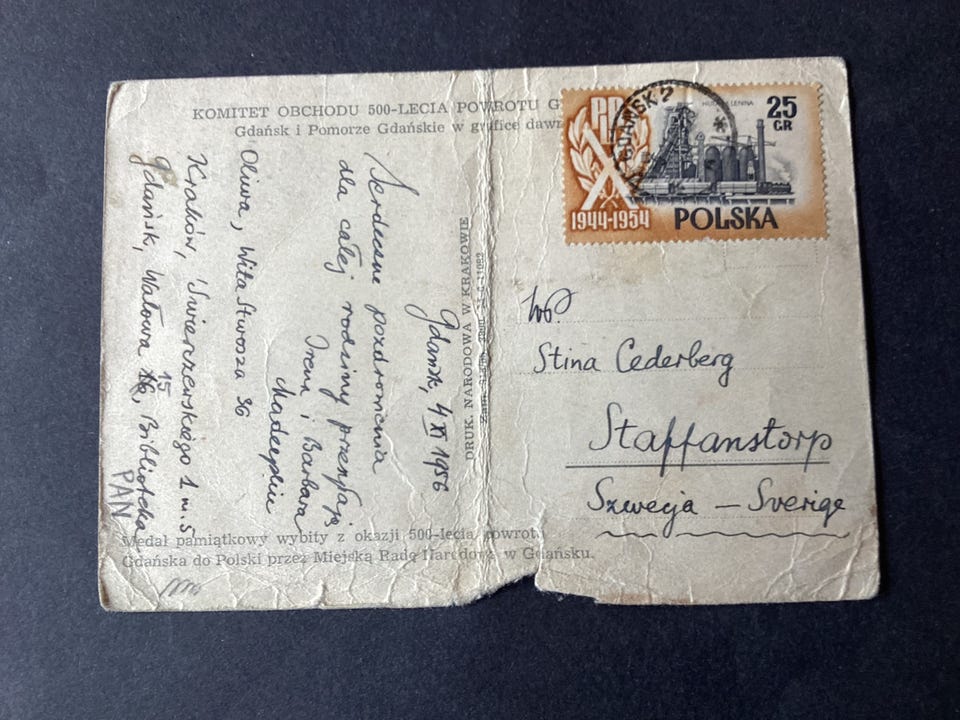 KOMITET OBCHODU 500-LECIA POWROTU G
Gdańsk i Pomorze Gdańskie w grafice dawn
GDAŃSK 2
HUTA LENINA
25
GR
1944-1954
POLSKA
Gdańsk, 4 XI 1956
Serdeczne pozdrowienia
dla całej rodziny przesyłają
Irena i Barbara
Oliwa, Wita Stwosza 36
Kraków, Świerczewskiego 1 m. 5
Gdańsk, Wałowa 15, Biblioteka
PAN
DRUK. NARODOWA W KRAKOWIE
WP.
Stina Cederberg
Staffanstorp
Szwecja — Sverige
Medal pamiątkowy wybity z okazji 500-lecia powrot
Gdańska do Polski przez Miejską Radę Narodową w Gdańsku.